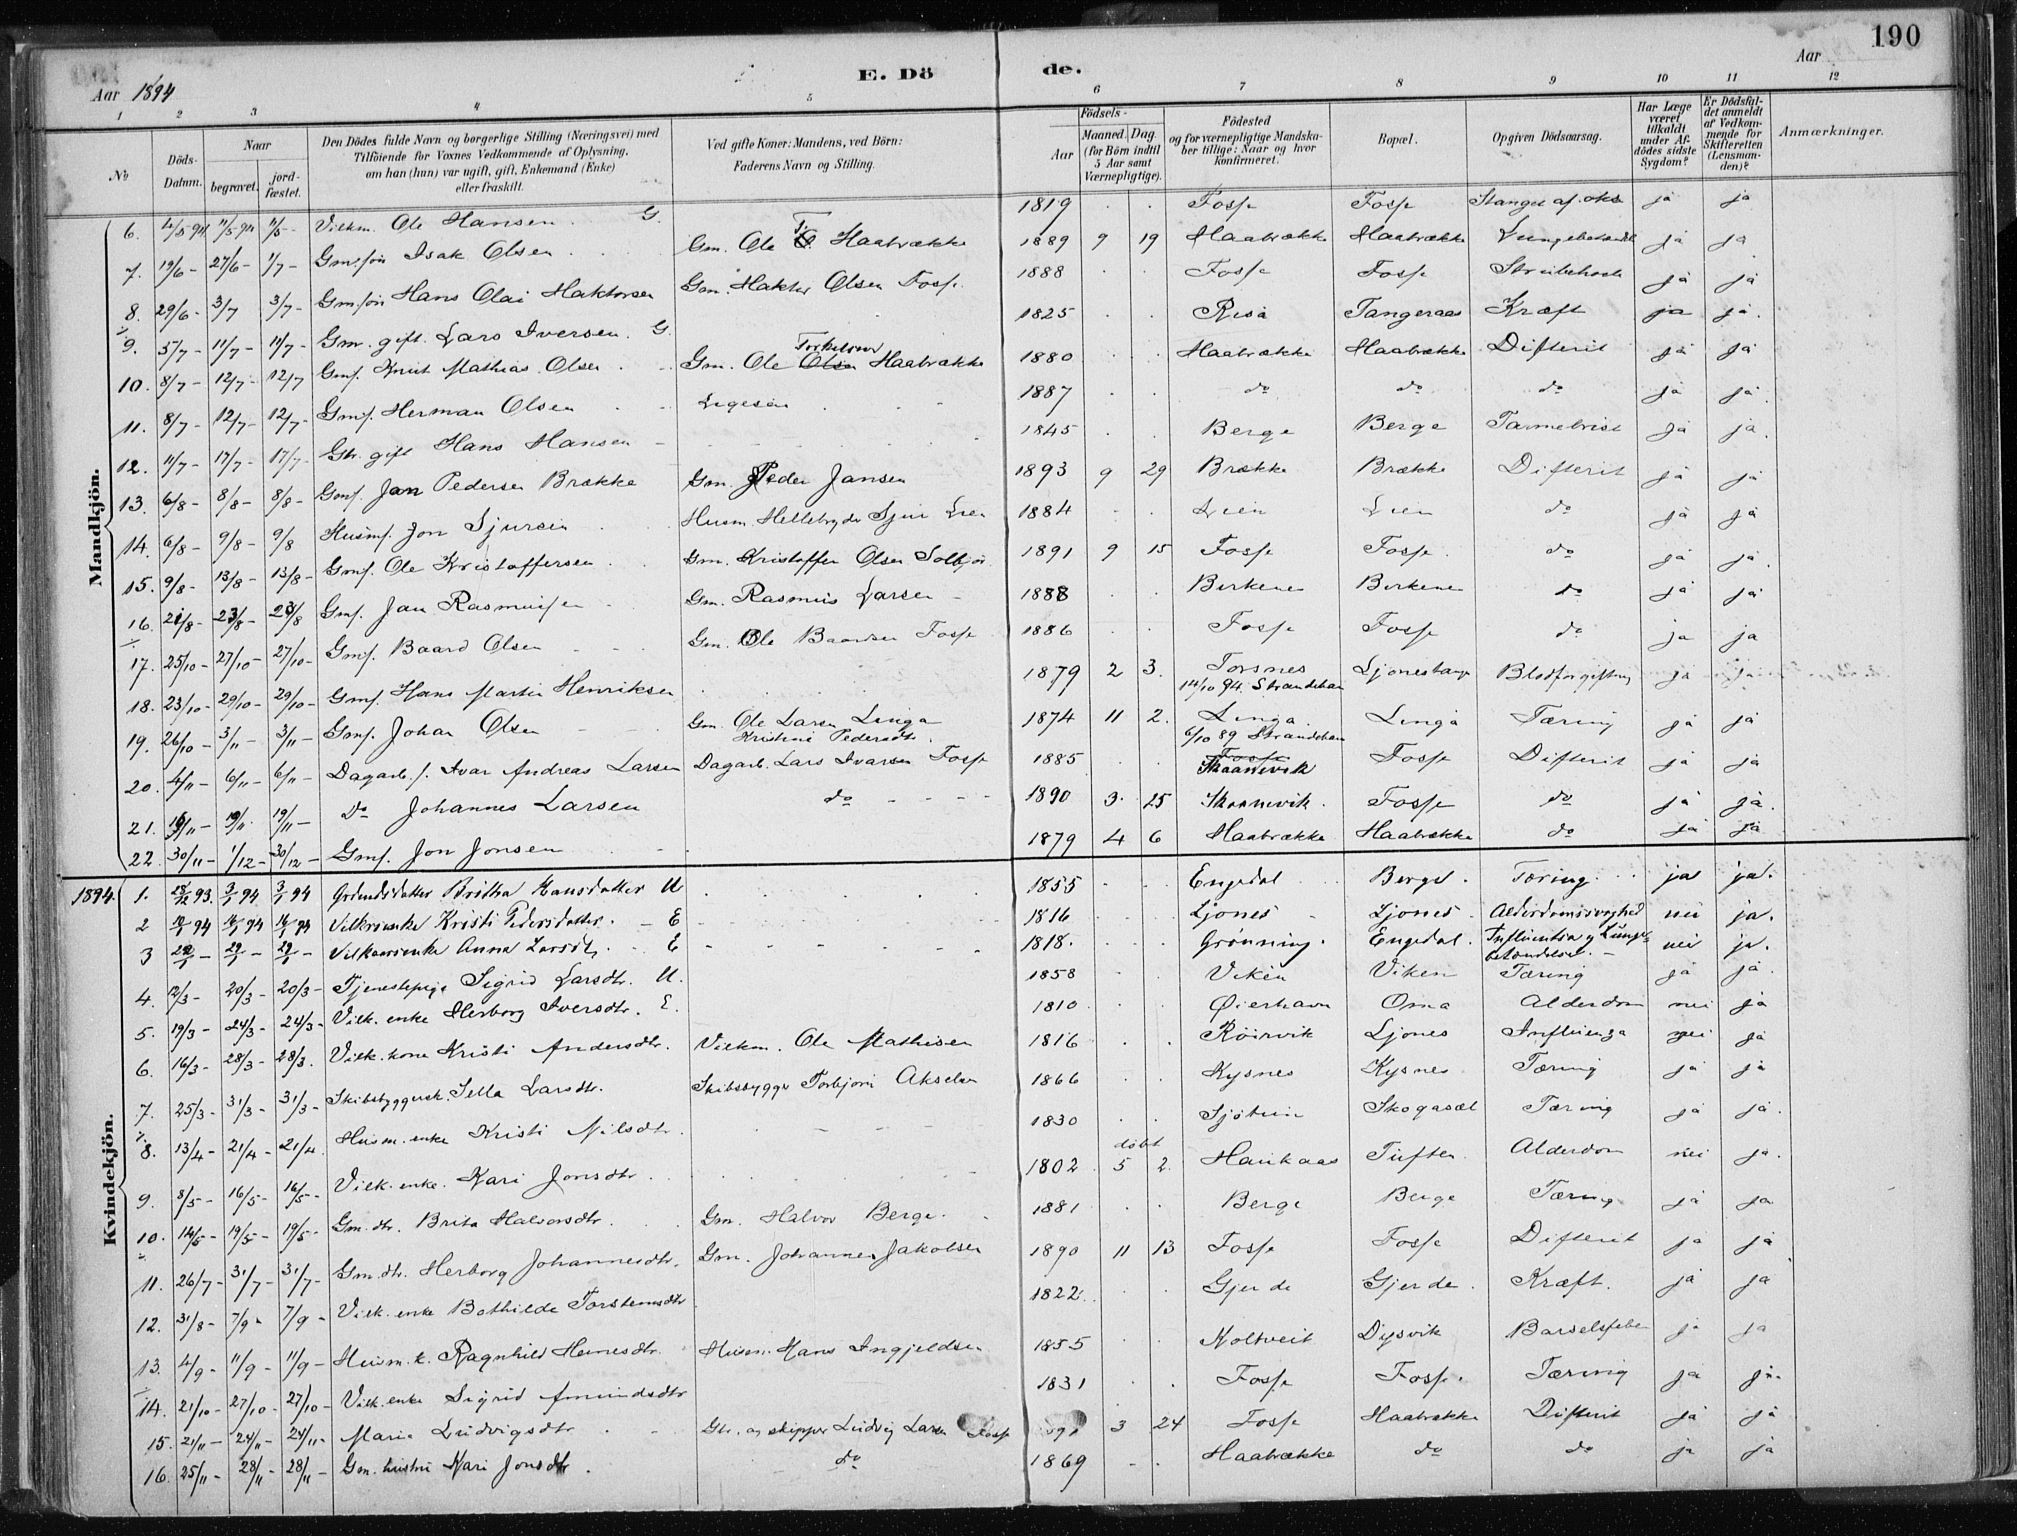 190
E. Dö de.
Aar 1894
Aar
1 2 3 4 5 6 7 8 9 10 11 12
No
Döds-Datum.
Naar
begravet.
jord-fæstet.
Den Dödes fulde Navn og borgerlige Stilling (Næringsvei) med
Tilföiende for Voxnes Vedkommende af Oplysning,
om han (hun) var ugift, gift, Enkemand (Enke)
eller fraskilt.
Ved gifte Koner: Mandens, ved Börn:
Faderens Navn og Stilling.
Födsels-
Aar
Maaned. Dag.
(for Börn indtil
5 Aar samt
Værnepligtige).
Födested
og for værnepligtige Mandska-
ber tillige: Naar og hvor
konfirmeret.
Bopæl.
Opgiven Dödsaarsag.
Har Læge
været
tilkaldt
under Af-
dödes sidste
Sygdom?
Er Dödsfal-
det anmeldt
af Vedkom-
mende for
Skifteretten
(Lensman-
den)?
Anmærkninger.
Mandkjön.
6. 11/5 94 11/5 - Vilkm. Ole Hansen G. 1819 Fosse Fosse ja ja
7. 19/6 - 27/6 - 1/7 - Gm.søn Isak Olsen Gm. Ole T. Haabrække 1889 9 19 Haabrække Haabrække ja ja
8. 29/6 - 3/7 3/7 - Gm.søn Hans Olai Haktorsen Gm. Haktor Olsen Fosse 1888 Fosse Fosse Strubehoste ja ja
9. 5/7 - 11/7 - 11/7 - Gm. gift. Lars Iversen G. 1825 Risa Tangeraas Kræft ja ja.
10. 8/7 - 12/7 - 12/7 Gms. Knut Mathias Olsen Gm. Ole Torkelsen Haabrække 1880 Haabrække Haabrække Difterit ja ja
11. 8/7 - 12/7 - 12/7 - Gms. Herman Olsen Ligesaa 1887 do do do ja ja
12. 11/7 - 17/7 - 17/7 - Gbr. gift Hans Hansen 1845 Berge Berge Tarmebrist ja ja.
13. 6/8 - 8/8 - 8/8 - Gms. Jan Pedersen Brække Gm. Peder Jansen 1893 9 29 Brække Brække Difterit ja ja
14. 6/8 - 9/8 - 9/8 Husms. Jon Sjursen Husm. Sjur Lien 1884 Lien Lien do ja ja
15. 9/8 - 13/8 - 13/8 - Gms. Ole Kristoffersen Gm. Kristoffer Olsen Solbjør 1891 9 15 Fosse Fosse do ja ja.
16. 21/8 - 23/8 - 23/8 Gms. Jan Rasmussen Gm. Rasmus Larsen 1888 Birkenes Birkenes do ja ja
17. 25/10 - 27/10 - 27/10 - Gms. Baard Olsen Gm. Ole Baardsen Fosse 1886 Fosse Fosse do ja ja
18. 23/10 - 29/10 - 29/10 - Gms. Hans Martin Henriksen 1879 2 3. Torsnes Blodforgiftning ja ja
14/10 94. Strandebarm
19. 26/10 - 3/11 - 3/11 - Gms. Johan Olsen Gm. Ole Larsen Linga 1874 11 2. Linga Linga Tæring ja ja
Kristine Pedersdtr. 6/10 89 Strandebarm
20. 4/11 - 6/11 - 6/11 - Dagarb.s. Ivar Andreas Larsen Dagarb. Lars Ivarsen Fosse 1885 Fosse Skaanevik Fosse Difterit ja ja
21. 19/11 - 19/11 - do Johannes Larsen do 1890 3 25 Skaanevik. Fosse do ja ja.
22. 30/11 - 1/12 - 30/12 - Gms. Jon Jonsen 1879 4 6 Haabrække Haabrække do ja ja
1894.
Kvindekjön.
1. 28/12 93. 3/1 94 3/1 94 Britha Hansdatter U 1855 Engedal Berge. Tæring ja ja.
2 12/1 94 16/1 94 16/1 94 Vilkrsenke Kristi Pedersdatter. - E 1816 Ljones Ljones Alderdomssvaghed nei ja.
3 22/1 - 29/1 - 29/1 - Vilkaarsenke Anna Larsdt. E 1818. Grønning. Engedal. Influentsa og Lunge-
betændelse. nei ja.
4. 12/3 - 20/3 - 20/3 - Tjenestepige Sigrid Larsdtr. U. 1858 Viken Viken Tæring ja ja
5. 19/3 - 24/3 - 24/3 - Vilk. enke Herborg Iversdtr. E. 1810 Øierhavn Oma Alderdom nei ja
6. 16/3 - 28/3 - 28/3. Vilk. kone Kristi Andersdtr. Vilkm. Ole Mathisen 1816 Røirvik Ljones Influenza nei ja
7. 25/3 - 31/3 - 31/3 - Skibsbyggersk. Sella Larsdtr. Skibsbygger Torbjørn Akselsen 1866 Kysnes Kysnes Tæring ja ja
8. 13/4 - 21/4 - 21/4 Husm. enke Kristi Nilsdtr. 1830 Skogasæl Tæring ja ja.
døbt
9. 8/5 - 16/5 - 16/5 - Vilk. enke. Kari Jonsdtr. 1802 5 2. Haukaas Tufte Alderdom nei ja.
10. 14/5 - 19/5 - 19/5 - Gm. dtr. Brita Halvorsdtr. Gm. Halvor Berge. 1881 Berge Berge Tæring ja ja
11. 26/7 - 31/7 - 31/7 - Gm. dtr. Herborg Johannesdtr. Gm. Johannes Jakobsen 1890 11 13 Fosse Fosse Difterit ja ja
12. 31/8 - 7/9 - 7/9 - Vilk. enke Bothilde Torsteinsdtr 1822 Gjerde Gjerde. Kræft. ja ja
13. 4/9 - 11/9 - 11/9 - Husm. k. Ragnhild Husm. Hans Ingjeldsen 1855 Koltveit Dysvik Barselsfeber ja ja
14. 21/10 - 27/10 - 27/10 - Vilk. enke Sigrid Amundsdtr 1831 Fosse Fosse. Tæring ja ja.
15. 21/11 - 24/11 - 24/11 - Marie Ludvigsdtr Gbr. og skipper Ludvig Larsen Fosse 3 24 Fosse Haabrække Difterit ja ja
16. 25/11 - 28/11 - 28/11 - Gm. hustru Kari Jonsdtr. do 1869 Haabrække do do ja ja